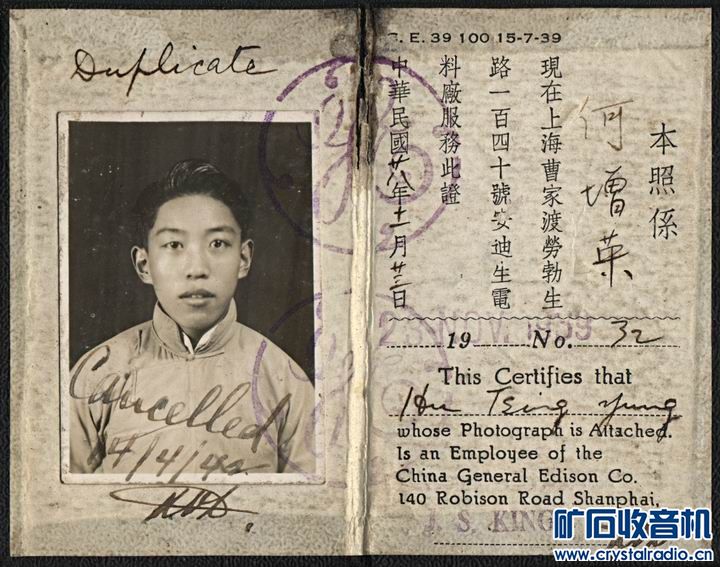 Duplicate
Cancelled
14/4/42
C. E. 39 100 15-7-39
本照係
何增英
現在上海曹家渡勞勃生
路一百四十號安迪生電
料廠服務此證
中華民國廿八年十一月廿三日
NOV. 1939
19 No. 32
This Certifies that
Hu Tsing Yung
whose Photograph is Attached.
Is an Employee of the
China General Edison Co.
140 Robison Road Shanphai,
J. S. KING
矿石收音机
www.crystalradio.cn